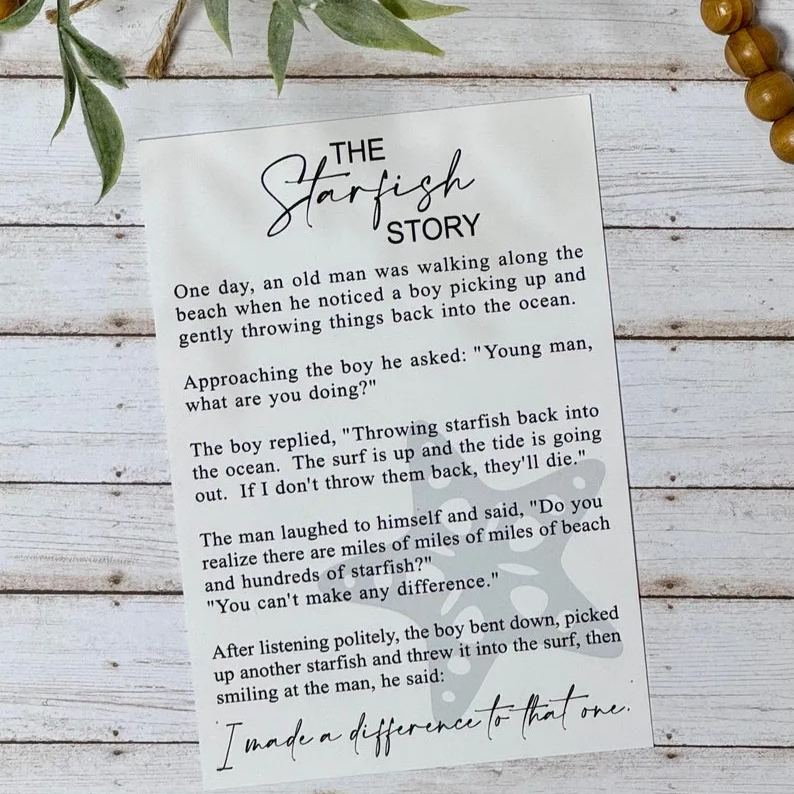 THE
Starfish
STORY
One day, an old man was walking along the
beach when he noticed a boy picking up and
gently throwing things back into the ocean.
Approaching the boy he asked: "Young man,
what are you doing?"
The boy replied, "Throwing starfish back into
the ocean. The surf is up and the tide is going
out. If I don't throw them back, they'll die."
The man laughed to himself and said, "Do you
realize there are miles of miles of miles of beach
and hundreds of starfish?"
"You can't make any difference."
After listening politely, the boy bent down, picked
up another starfish and threw it into the surf, then
smiling at the man, he said:
I made a difference to that one.